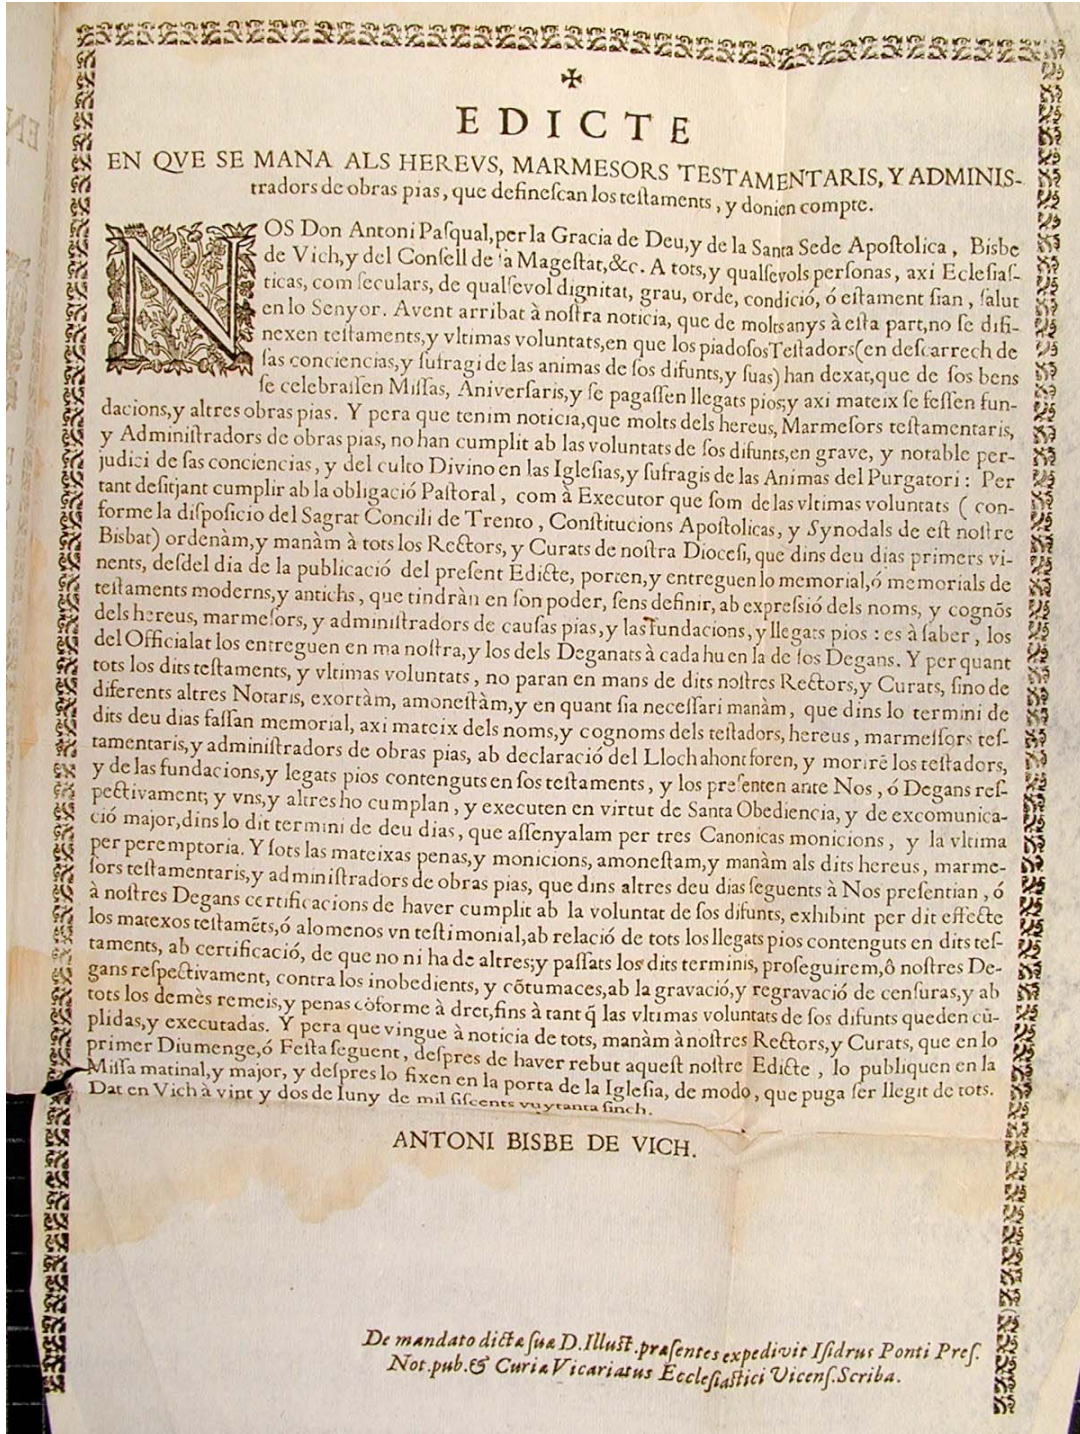 ✠
EDICTE
EN QVE SE MANA ALS HEREVS, MARMESORS TESTAMENTARIS, Y ADMINIS-
tradors de obras pias, que defineſcan los teſtaments, y donien compte.
NOS Don Antoni Paſqual, per la Gracia de Deu, y de la Santa Sede Apoſtolica, Bisbe
de Vich, y del Conſell de ſa Mageſtat, &c. A tots, y qualſevols perſonas, axi Ecleſiaſ-
ticas, com ſeculars, de qualſevol dignitat, grau, orde, condició, ó eſtament ſian, ſalut
en lo Senyor. Avent arribat à noſtra noticia, que de molts anys à eſta part, no ſe difi-
nexen teſtaments, y vltimas voluntats, en que los piadoſos Teſtadors (en deſcarrech de
ſas conciencias, y ſufragi de las animas de ſos difunts, y ſuas) han dexat, que de ſos bens
ſe celebraſſen Miſſas, Aniverſaris, y ſe pagaſſen llegats pios, y axi mateix ſe feſſen fun-
dacions, y altres obras pias. Y pera que tenim noticia, que molts dels hereus, Marmeſors teſtamentaris,
y Adminiſtradors de obras pias, no han cumplit ab las voluntats de ſos difunts, en grave, y notable per-
judici de ſas conciencias, y del culto Divino en las Igleſias, y ſufragis de las Animas del Purgatori : Per
tant deſitjant cumplir ab la obligació Paſtoral, com à Executor que ſom de las vltimas voluntats ( con-
forme la diſpoſicio del Sagrat Concili de Trento, Conſtitucions Apoſtolicas, y Synodals de eſt noſtre
Bisbat) ordenàm, y manàm à tots los Rectors, y Curats de noſtra Dioceſi, que dins deu dias primers vi-
nents, deſdel dia de la publicació del preſent Edicte, porten, y entreguen lo memorial, ó memorials de
teſtaments moderns, y antichs, que tindràn en ſon poder, ſens definir, ab expreſsió dels noms, y cognõs
dels hereus, marmeſors, y adminiſtradors de cauſas pias, y las fundacions, y llegats pios : es à ſaber, los
del Officialat los entreguen en ma noſtra, y los dels Deganats à cada hu en la de ſos Degans. Y per quant
tots los dits teſtaments, y vltimas voluntats, no paran en mans de dits noſtres Rectors, y Curats, ſino de
diferents altres Notaris, exortàm, amoneſtàm, y en quant ſia neceſſari manàm, que dins lo termini de
dits deu dias faſſan memorial, axi mateix dels noms, y cognoms dels teſtadors, hereus, marmeſſors teſ-
tamentaris, y adminiſtradors de obras pias, ab declaració del Lloch ahont foren, y morirẽ los teſtadors,
y de las fundacions, y legats pios contenguts en ſos teſtaments, y los preſenten ante Nos, ó Degans reſ-
pectivament; y vns, y altres ho cumplan, y executen en virtut de Santa Obediencia, y de excomunica-
ció major, dins lo dit termini de deu dias, que aſſenyalam per tres Canonicas monicions, y la vltima
per peremptoria. Y ſots las mateixas penas, y monicions, amoneſtam, y manàm als dits hereus, marme-
ſors teſtamentaris, y adminiſtradors de obras pias, que dins altres deu dias ſeguents à Nos preſentian, ó
à noſtres Degans certificacions de haver cumplit ab la voluntat de ſos difunts, exhibint per dit effecte
los matexos teſtamẽts, ó alomenos vn teſtimonial, ab relació de tots los llegats pios contenguts en dits teſ-
taments, ab certificació, de que no ni ha de altres; y paſſats los dits terminis, proſeguirem, ô noſtres De-
gans reſpectivament, contra los inobedients, y cõtumaces, ab la gravació, y regravació de cenſuras, y ab
tots los demès remeis, y penas cõforme à dret, fins à tant q̃ las vltimas voluntats de ſos difunts queden cũ-
plidas, y executadas. Y pera que vingue à noticia de tots, manàm à noſtres Rectors, y Curats, que en lo
primer Diumenge, ó Feſta ſeguent, deſpres de haver rebut aqueſt noſtre Edicte, lo publiquen en la
Miſſa matinal, y major, y deſpres lo fixen en la porta de la Igleſia, de modo, que puga ſer llegit de tots.
Dat en Vich à vint y dos de Iuny de mil ſiſcents vuytanta ſinch.
ANTONI BISBE DE VICH.
De mandato dictæ ſuæ D. Illuſt. præſentes expedivit Iſidrus Ponti Preſ.
Not. pub. & Curiæ Vicariatus Eccleſiaſtici Vicenſ. Scriba.